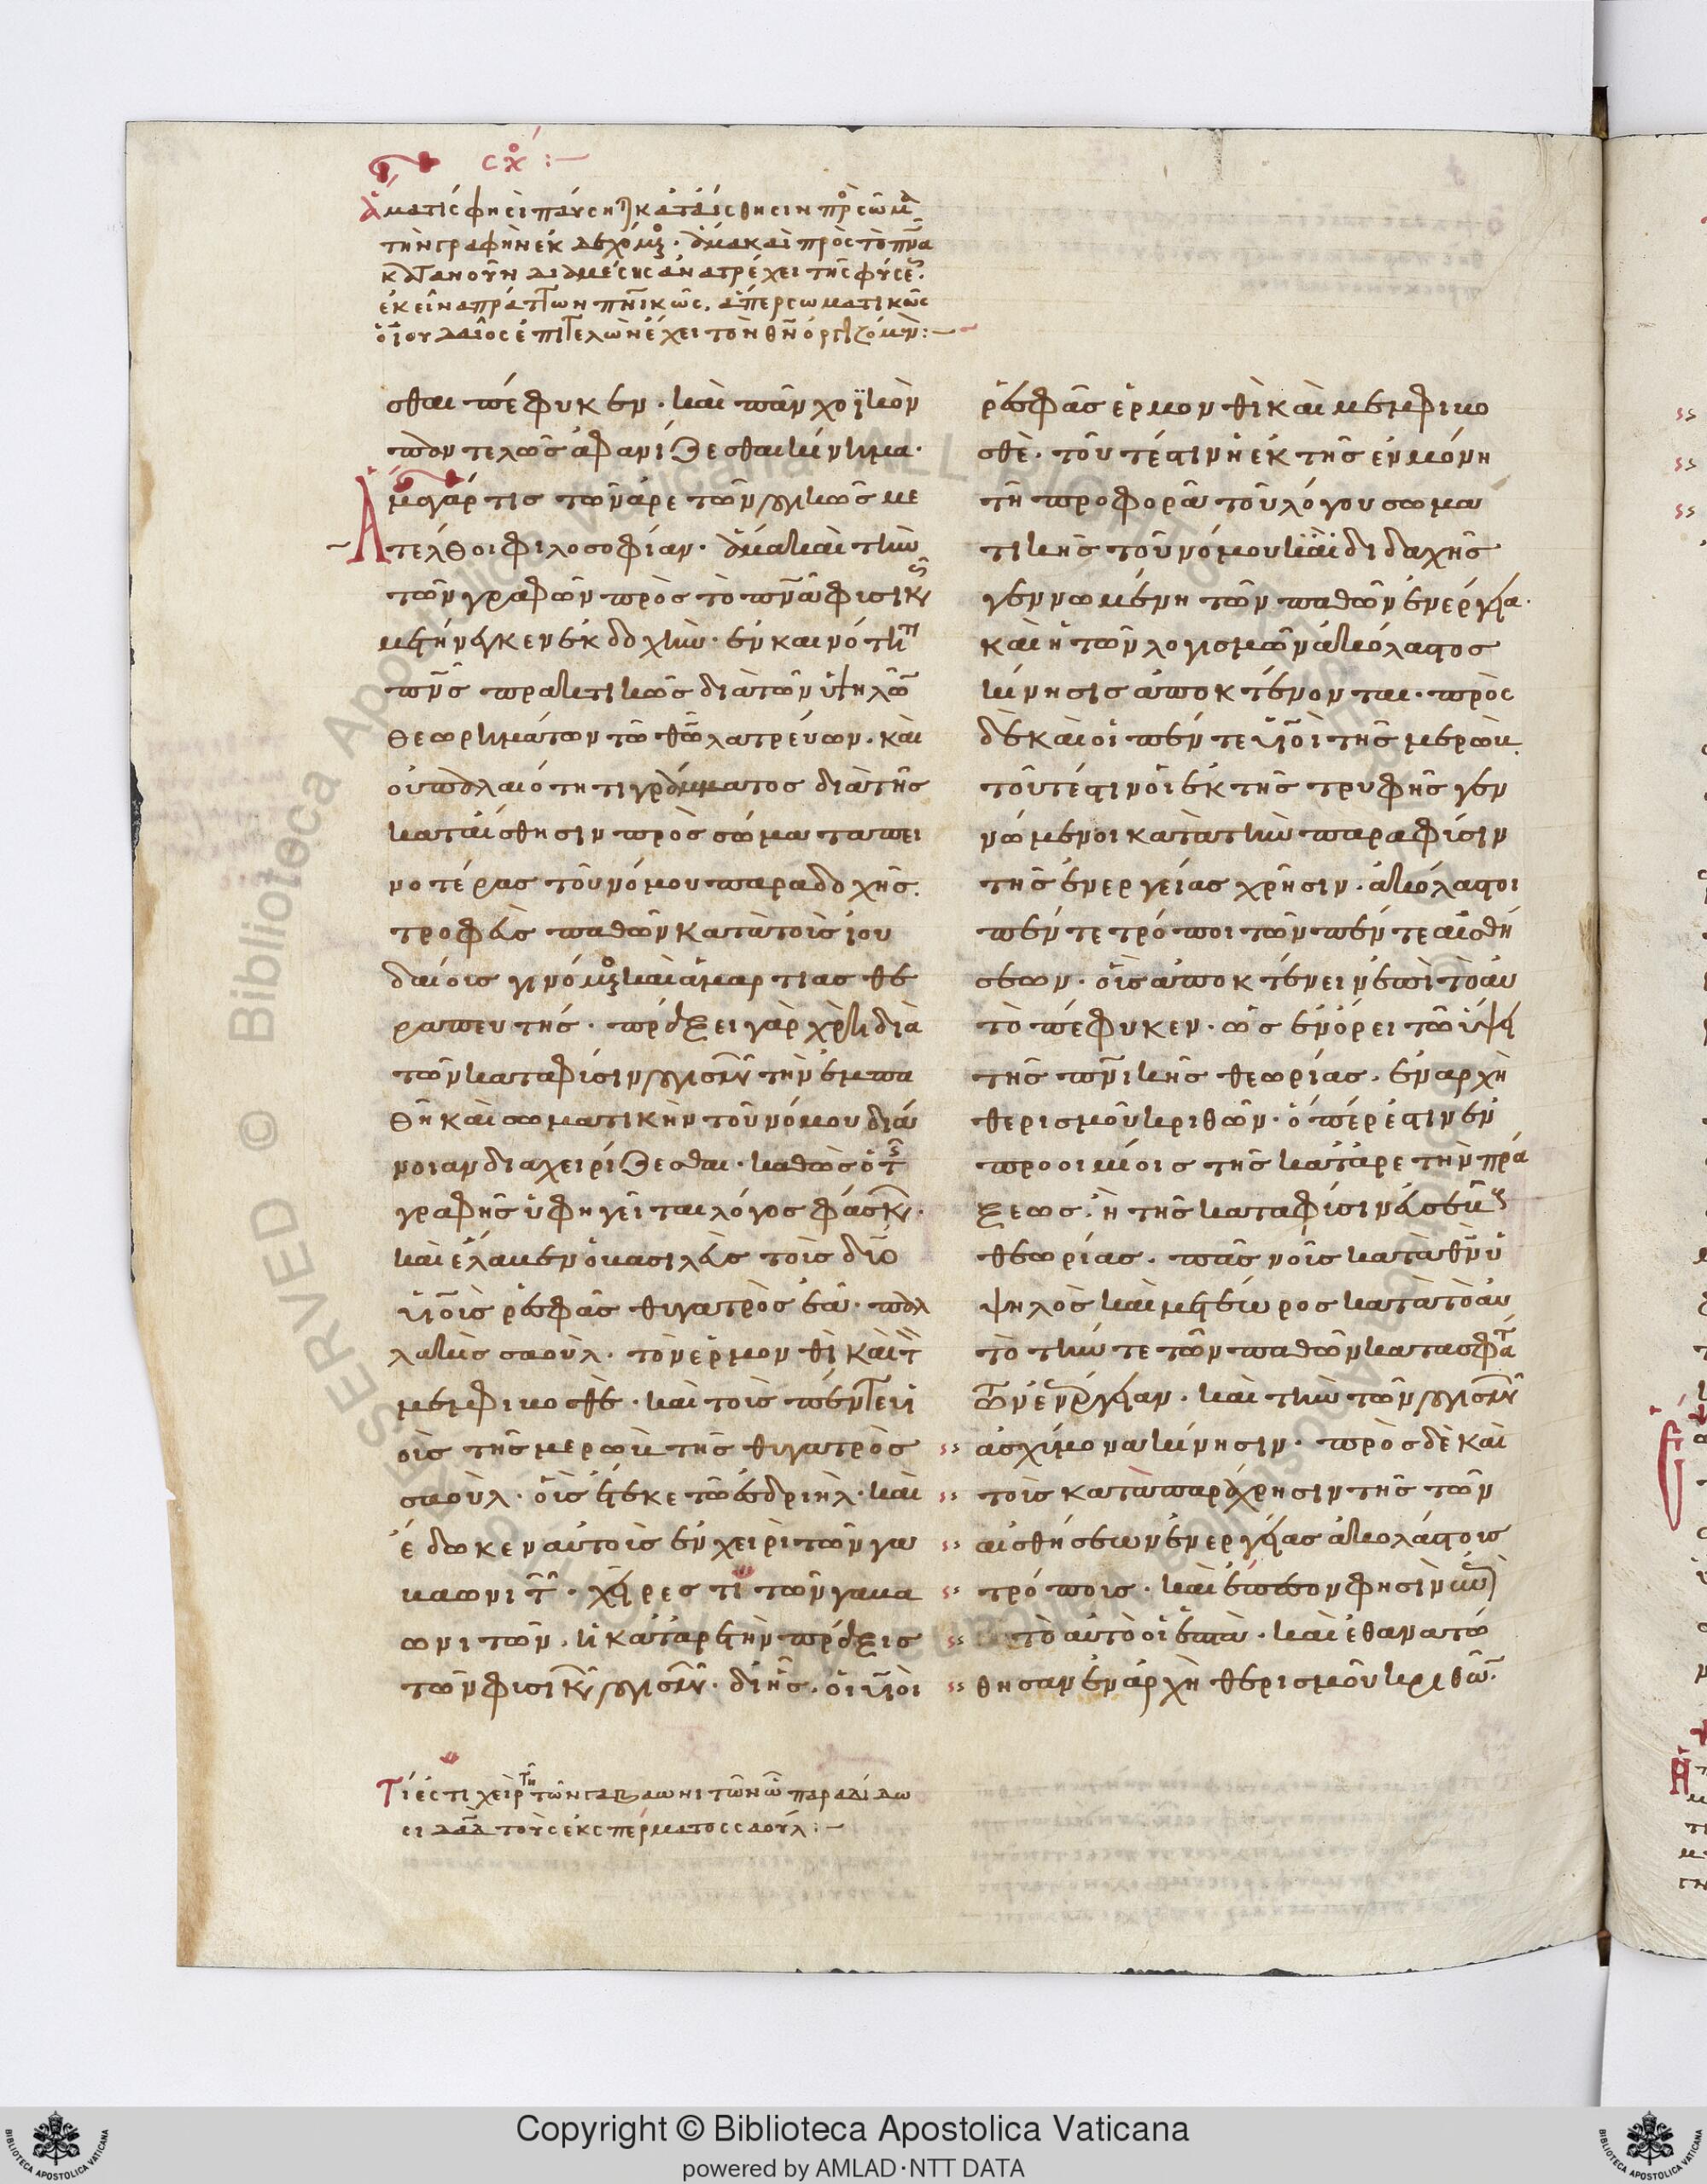 σχο :—
Ἅμα τίς φησι παύσηται κατ' αἴσθησιν πρὸς σῶμα
τὴν γραφὴν ἐκδεχόμενος· ἅμα καὶ πρὸς τὸ πνα
κατὰ νοῦν διαμέσης ἀνατρέχει τῆς φύσεως·
ἐκεῖνα πράττων πνικῶς, ἅπερ σωματικῶς
ὁ ἰουδαῖος ἐπιτελῶν ἔχει τὸν θν ὀργιζόμενον :—
σθαι πέφυκεν· καὶ πᾶν χοϊκὸν
παντελῶς ἀφανίζεσθαι κίνημα·
Ἅμα γάρ τις τῶν ἀρετῶν λογικῶς με
τέλθοι φιλοσοφίαν· ἅμα καὶ τὴν
τῶν γραφῶν πρὸς τὸ πνα φυσικῶς
μετήνεγκεν ἐκδοχὴν· ἐν καινότητι
πνς πρακτικῶς διὰ τῶν ὑψηλῶν
θεωρημάτων τῶ θω λατρεύων· καὶ
οὐ παλαιότητι γράμματος διὰ τῆς
κατ' αἴσθησιν πρὸς σῶμα ταπει
νοτέρας τοῦ νόμου παραδοχῆς·
τροφεὺς παθῶν κατὰ τοὺς ἰου
δαίους γινόμενος καὶ ἁμαρτίας θε
ραπευτής· πράξει γὰρ χρὴ διὰ
τῶν κατὰ φύσιν λογισμῶν τὴν ἐμπα
θῆ καὶ σωματικὴν τοῦ νόμου διά
νοιαν διαχειρίζεσθαι· καθὼς ὁ τῆς
γραφῆς ὑφηγεῖται λόγος φάσκων·
καὶ ἔλαβεν ὁ βασιλεὺς τοὺς δύο
υἱοὺς ῥεσφᾶς θυγατρὸς ἐᾶ· παλ
λακῆς σαούλ· τὸν ἑρμονθὶ καὶ τὸν
μεμφιβοσθέ· καὶ τοὺς πέντε υἱ
οὺς τῆς μερὼβ τῆς θυγατρὸς
σαούλ· οὓς ἔτεκε τῶ ἐσδριήλ· καὶ
ἔδωκεν αὐτοὺς ἐν χειρὶ τῶν γα
βαωνιτῶν· χεῖρές τι τῶν γαβα
ωνιτῶν· ἡ κατ' ἀρετὴν πρᾶξις
τῶν φυσικῶν λογισμῶν· δι' ἧς, οἱ υἱοὶ
ῥεσφᾶς ἑρμονθὶ καὶ μεμφιβο
σθὲ· τουτέστιν ἡ ἐκ τῆς ἐν μόνη
τῆ προφορᾶ τοῦ λόγου σωμα
τικῆς τοῦ νόμου καὶ διδαχῆς
γεννωμένη τῶν παθῶν ἐνέργεια·
καὶ ἡ τῶν λογισμῶν ἀκόλαστος
κίνησις ἀποκτένονται· πρὸς
δὲ καὶ οἱ πέντε υἱοὶ τῆς μερὼβ·
τουτέστιν οἱ ἐκ τῆς τρυφῆς γεν
νώμενοι κατὰ τὴν παρὰ φύσιν
τῆς ἐνεργείας χρῆσιν· ἀκόλαστοι
πέντε τρόποι τῶν πέντε αἰσθή
σεων· οὓς ἀποκτένειν ἐπὶ τὸ αὐ
τὸ πέφυκεν· ὡς ἐν ὄρει τῶ ὕψει
τῆς πνικῆς θεωρίας· ἐν ἀρχῆ
θερισμοῦ κριθῶν· ὅπέρ ἐστιν ἐν
προοιμίοις τῆς κατ' ἀρετὴν πρά
ξεως· ἢ τῆς κατὰ φύσιν εὐσεβοῦς
θεωρίας· πᾶς νοῦς κατὰ θν ὑ
ψηλὸς καὶ μετέωρος κατὰ τὸ αὐ
τὸ τήν τε τῶν παθῶν κατασφάτ
των ἐνέργειαν· καὶ τὴν τῶν λογισμῶν
ἀσχήμονα κίνησιν· πρὸς δὲ καὶ
τοὺς κατὰ παράχρησιν τῆς τῶν
αἰσθήσεων ἐνεργείας ἀκολάστους
τρόπους· καὶ ἔπεσον φησὶν ἐπὶ
τὸ αὐτὸ οἱ ἑπτὰ· καὶ ἐθανατώ
θησαν ἐν ἀρχῆ θερισμοῦ κριθῶν·
Τί ἐστι χεὶρ τῶν γαβαωνιτῶν ὧ παραδίδω
σι δαδ τοὺς ἐκ σπέρματος σαούλ :—
Copyright © Biblioteca Apostolica Vaticana
powered by AMLAD·NTT DATA